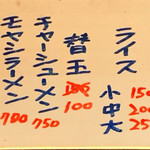 ライス
小 150
中 200
大 25
替玉
100
チャーシューメン
750
モヤシラーメン
700